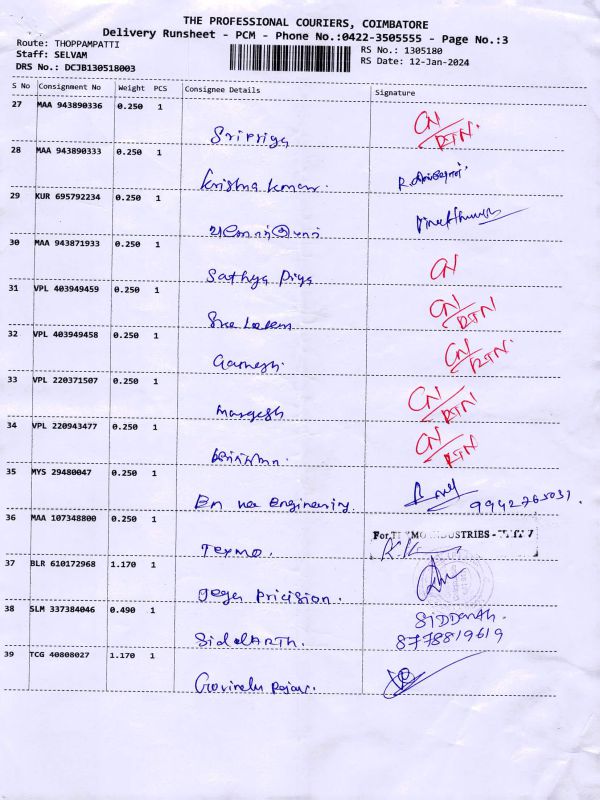 THE PROFESSIONAL COURIERS, COIMBATORE
Delivery Runsheet - PCM - Phone No.:0422-3505555 - Page No.:3
Route: THOPPAMPATTI
Staff: SELVAM
DRS No.: DCJB130518003
RS No.: 1305180
RS Date: 12-Jan-2024
S No Consignment No Weight PCS Consignee Details Signature
27 MAA 943890336 0.250 1 Sripriya CN/RTN.
28 MAA 943890333 0.250 1 Krishna kumar.
29 KUR 695792234 0.250 1
30 MAA 943871933 0.250 1 Sathya Priya CN
31 VPL 403949459 0.250 1 CN/RTN
32 VPL 403949458 0.250 1 Ganesh. CN/RTN.
33 VPL 220371507 0.250 1 CN/RTN
34 VPL 220943477 0.250 1 CN/RTN
35 MYS 29480047 0.250 1 Engineering.
36 MAA 107348800 0.250 1 Texmo. For INDUSTRIES -
37 BLR 610172968 1.170 1 Pricision.
38 SLM 337384046 0.490 1 SiddARTh. SIDDARTH.
8778819619
39 TCG 40808027 1.170 1